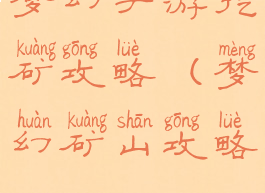 kuàng gōng lüè mèng
矿攻略（梦
huàn kuàng shān gōng lüè
幻矿山攻略